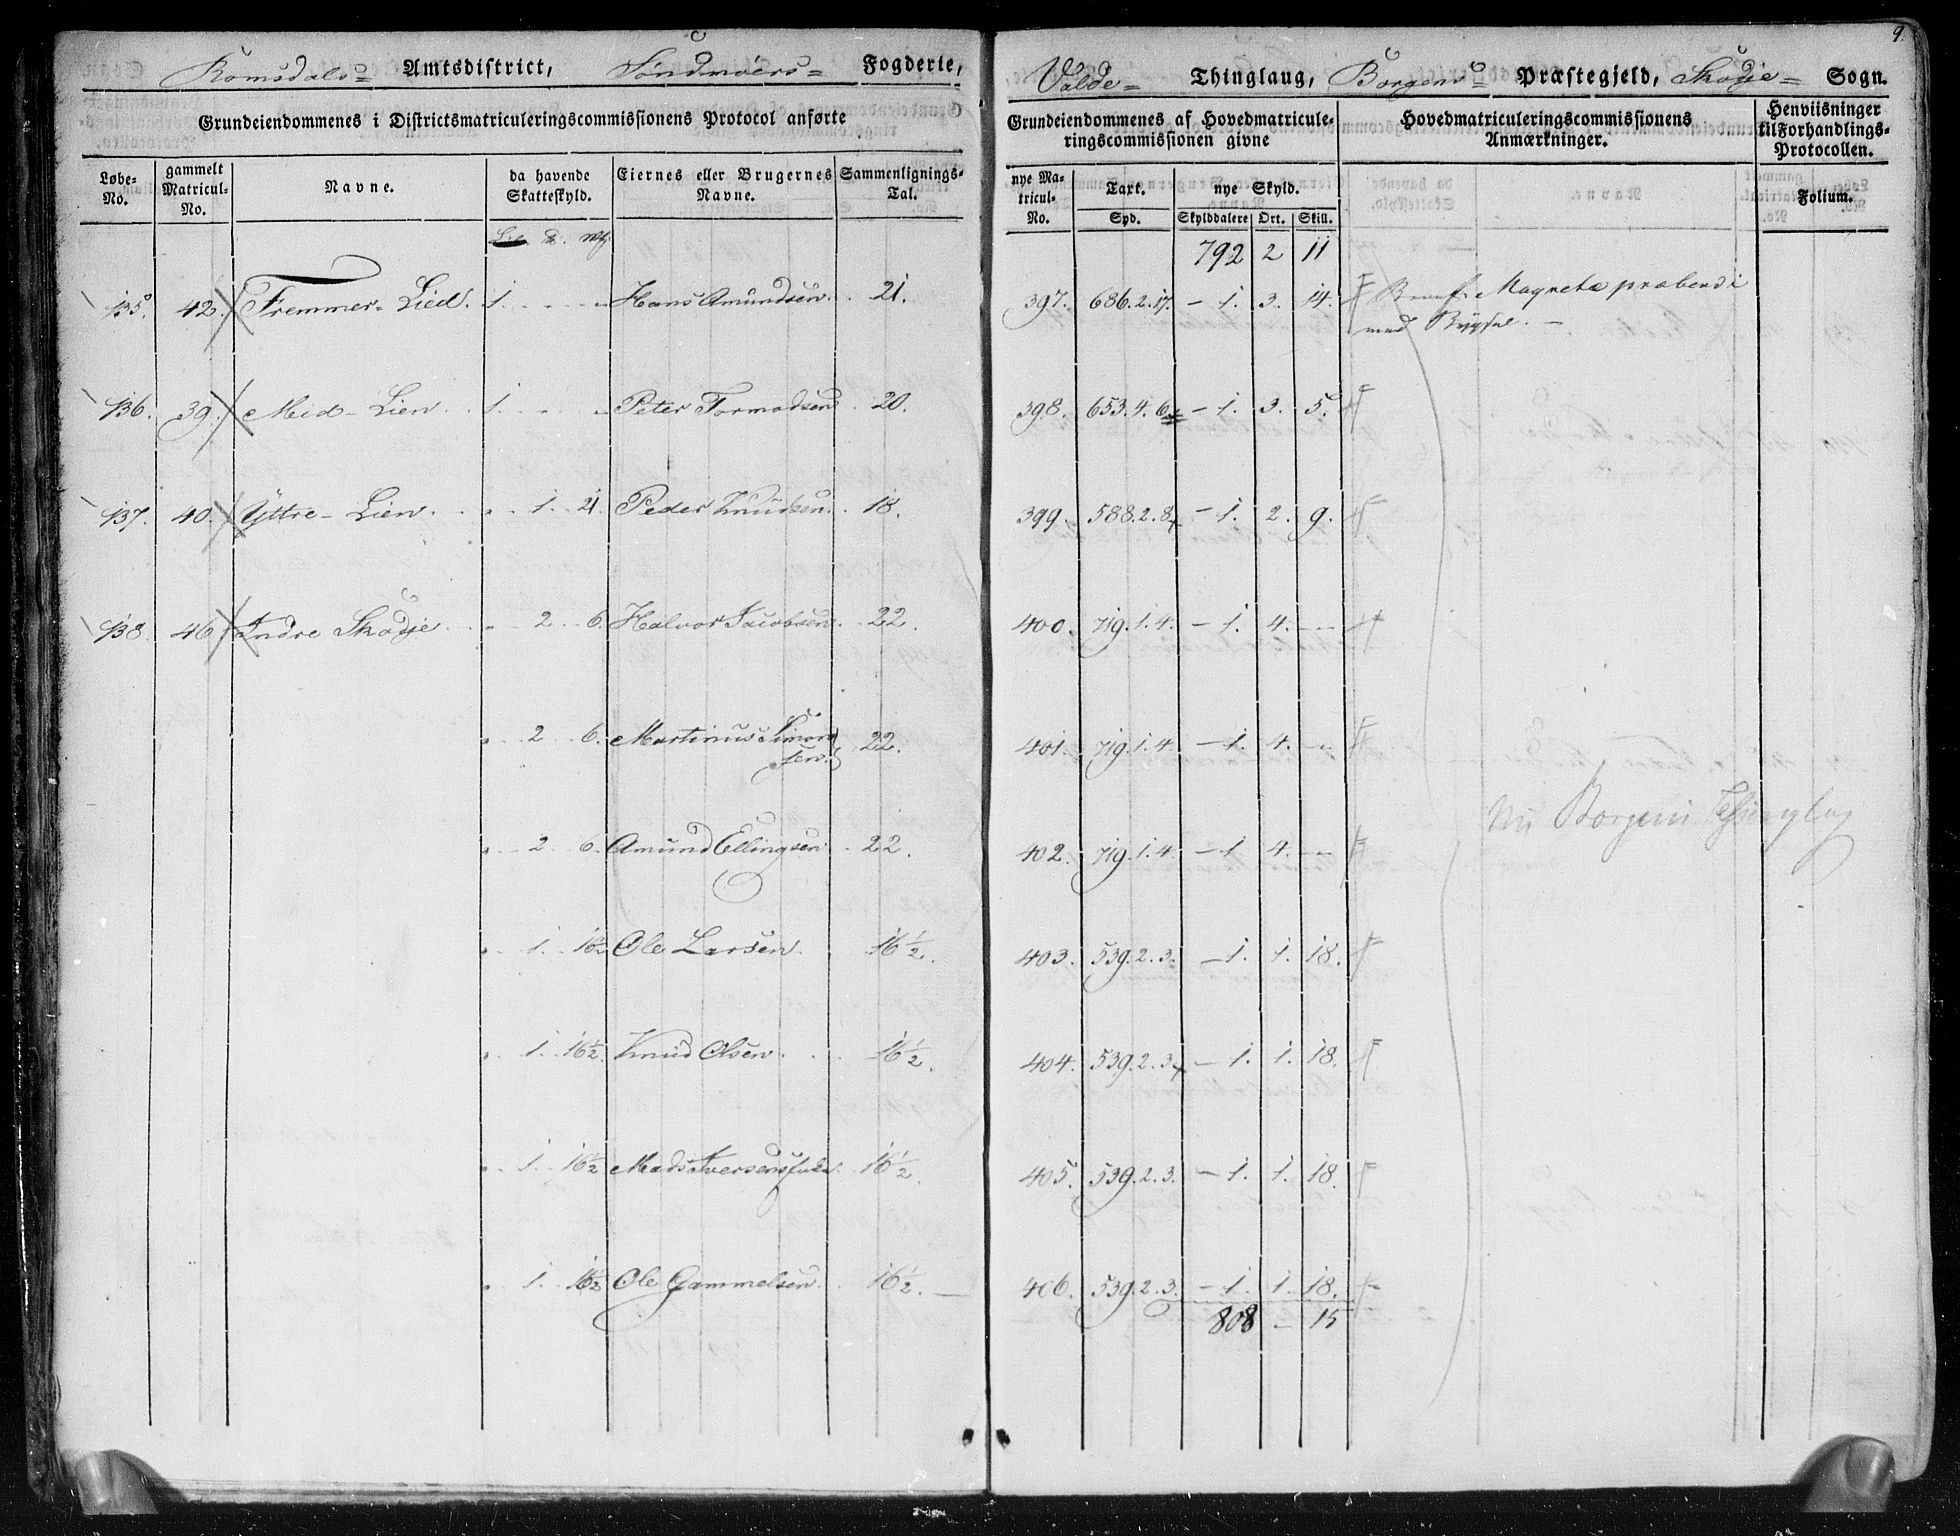 9.
Romsdals Amtsdistrict, Söndmoers Fogderie,
Grundeiendommenes i Districtsmatriculeringscommissionens Protocol anførte
Løbe-No. gammelt Matricul-No. Navne. da havende Skatteskyld. Eiernes eller Brugernes Navne. Sammenlignings-Tal.
135. 42. Fremmer-Lied. 1. Hans Amundsen. 21.
136. 39. Mid-Lien. 1. Peter Tormodsen 20.
137. 40. Yttre-Lien. " 1. 21. Peder Knudsen. 18.
138. 46. Indre Skodje " 2. 6. Halvor Jacobsen. 22.
" 2. 6. Martinus Simon
sen. 22.
" 2. 6. Amund Ellingsen 22.
" 1. 16½ Ole Larsen. 16½.
" 1. 16½. Knud Olsen. 16½.
" 1. 16½ Mads Iversens 16½.
" 1. 16½ Ole Gammelsen. 16½.
Valde Thinglaug, Borgens Præstegjeld, Skodje Sogn.
Grundeiendommenes af Hovedmatricule-
ringscommissionen givne
Hovedmatriculeringscommissionens
Anmærkninger.
Henviisninger
til Forhandlings-
Protocollen.
nye Ma-
tricul-
No. Taxt. nye Skyld. Folium.
Spd. Skylddalere Ort. Skill.
792 2 11
397. 686.2.17. - 1. 3. 14. Magneta præbendi
med Bygsel.
398. 653.4.6 - 1. 3. 5.
399. 588.2.8 - 1. 2. 9.
400. 719.1.4. - 1. 4. -
401. 719.1.4. - 1. 4. -
Nu Borgens Thinglag
402. 719.1.4. - 1 4. -
403. 539.2.3. - 1. 1. 18.
404. 539.2.3 - 1. 1. 18.
405. 539.2.3. - 1. 1. 18.
406. 539.2.3. - 1. 1. 18.
808 - 15